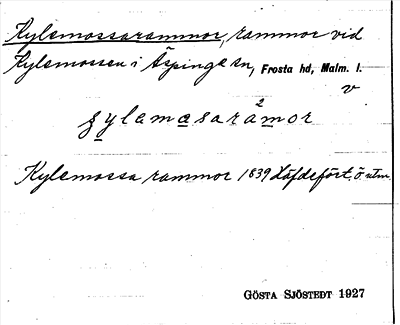 Kylemossarammor, rammor vid
Kylemossen i Äspinge sn, Frosta hd, Malm. l.
v
2
Kylemossa rammor 1839
GÖSTA SJÖSTEDT 1927